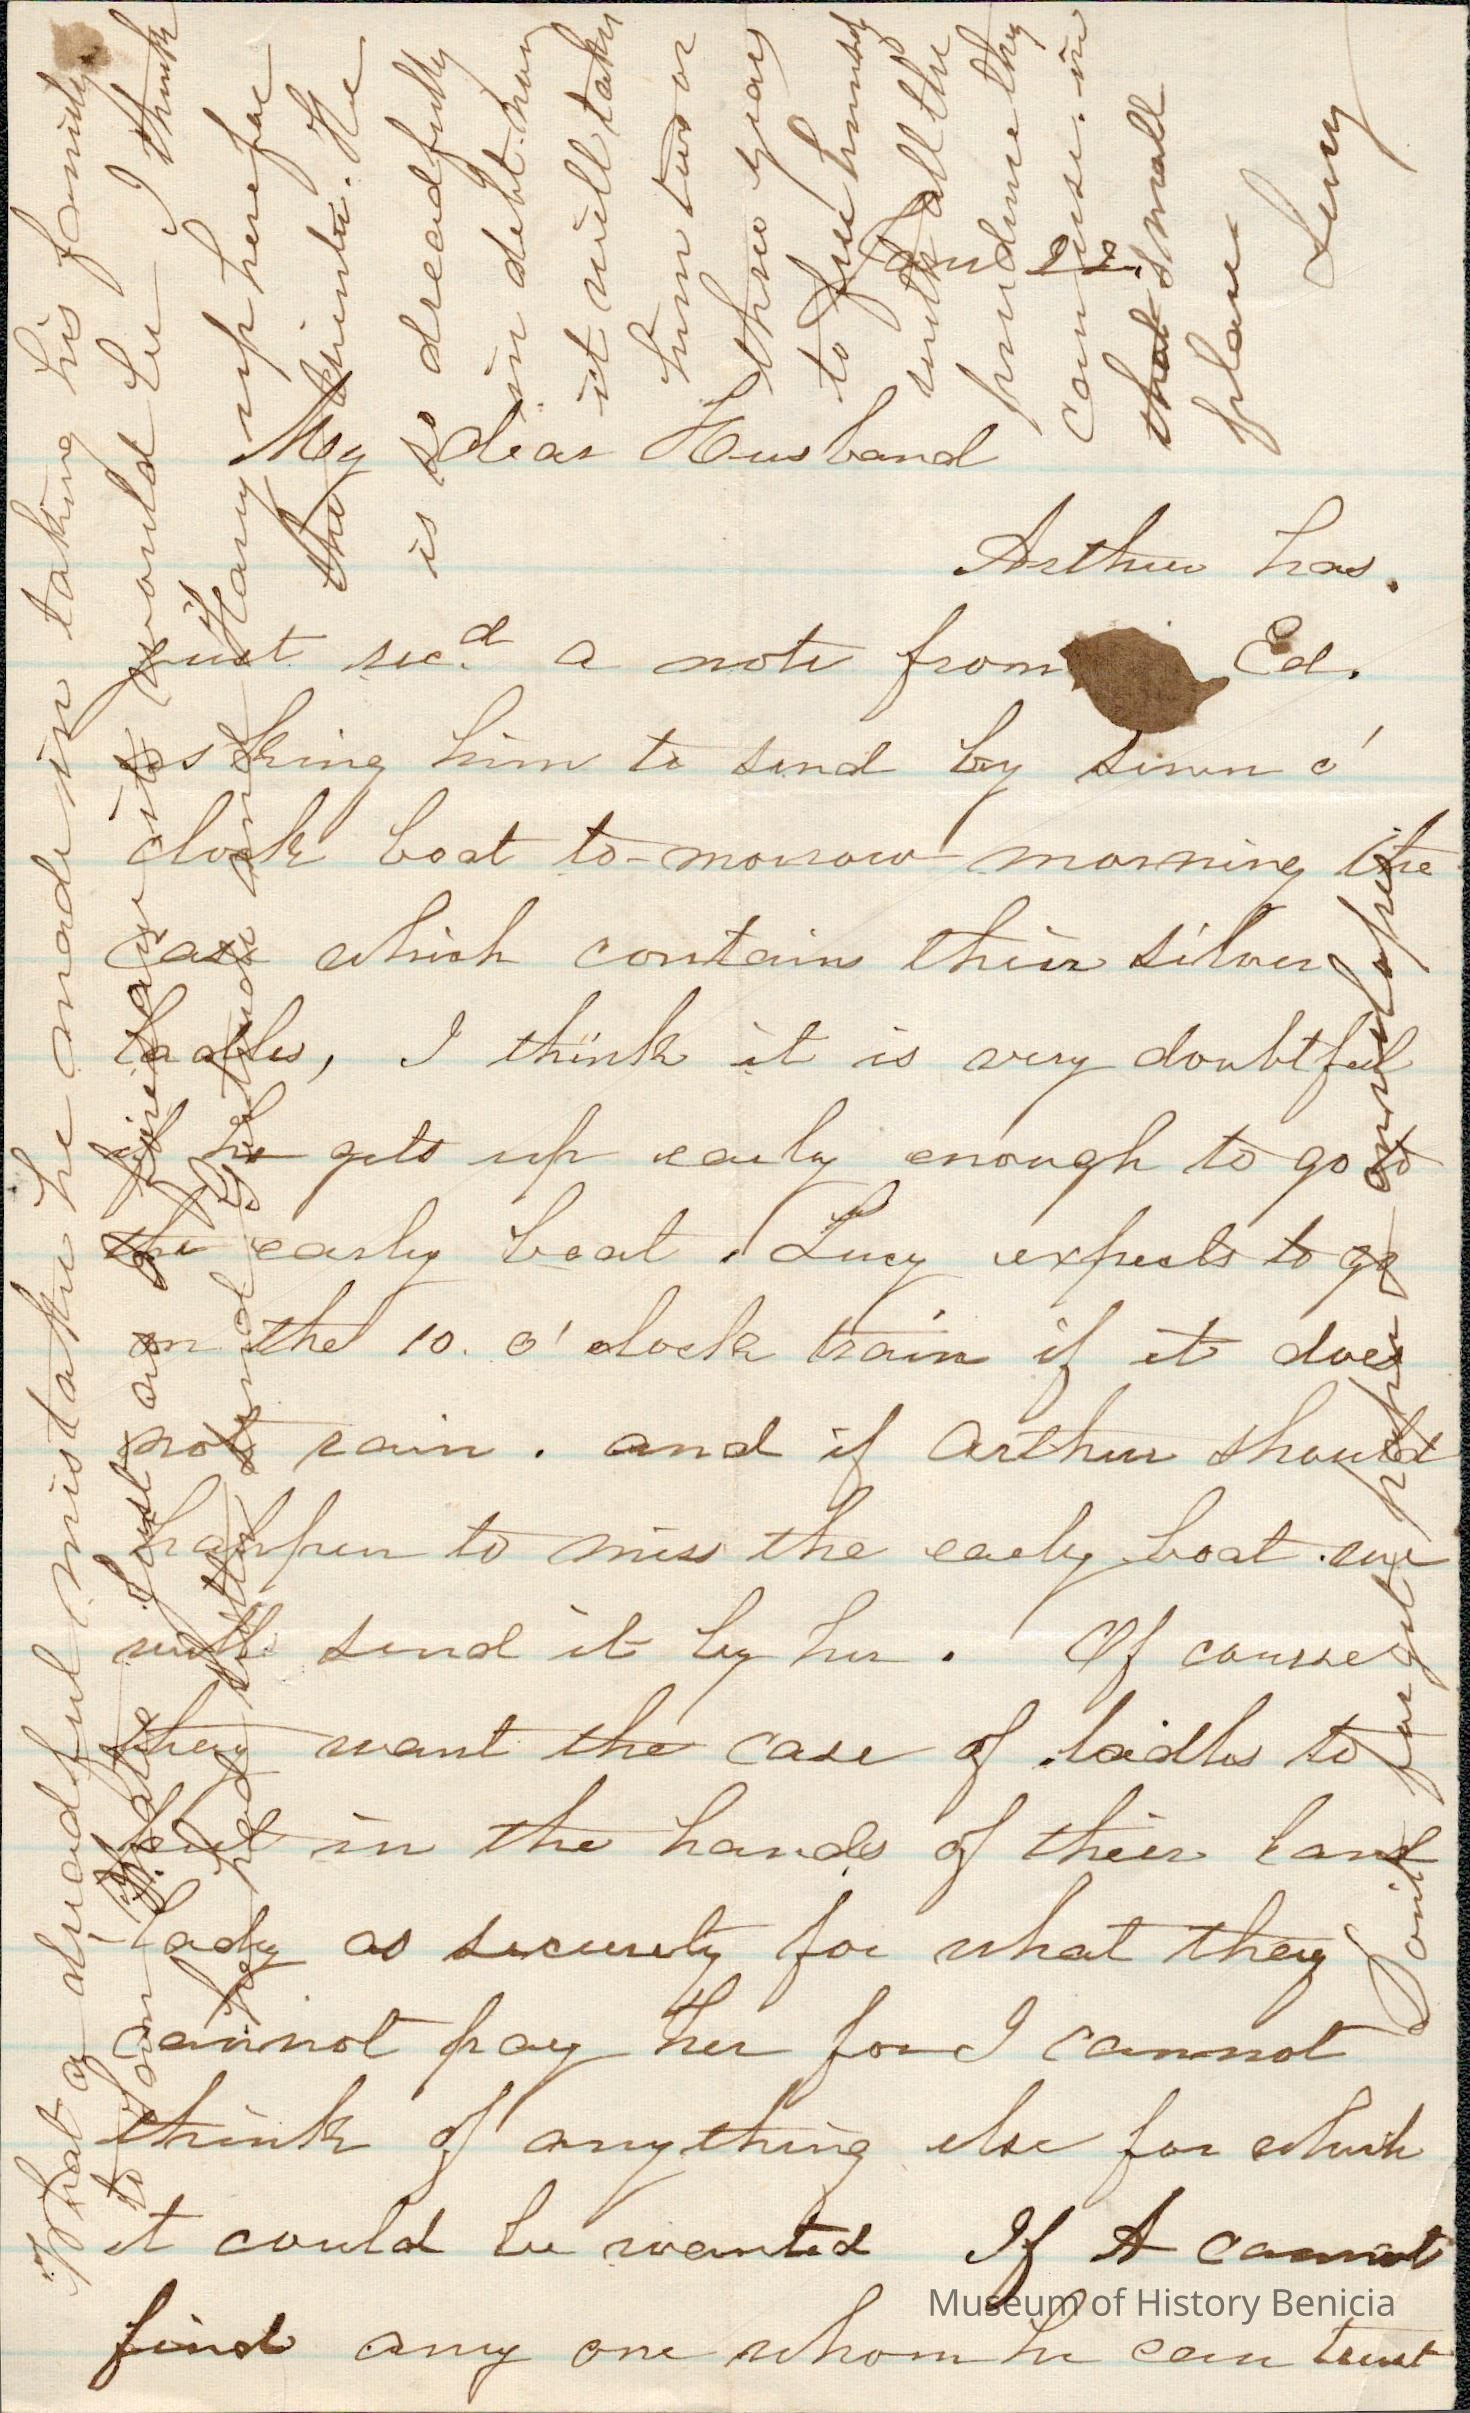 Jan 22.
My dear Husband
Arthur has.
just rec.d a note from Ed.
asking him to send by seven o'
clock boat to-morrow morning the
case which contains their silver
ladles, I think it is very doubtful
if he gets up early enough to go to
the early boat. Lucy expects to go
on the 10. o'clock train if it does
not rain. and if Arthur should
happen to miss the early boat we
will send it by her. Of course
they want the case of ladles to
put in the hands of their land
lady as security for what they
cannot pay her for I cannot
think of anything else for which
it could be wanted If A cannot
find any one whom he can trust
What a dreadful mistake he made in taking his family
to San
first and
would be I think
Harry up here for
the winter. He
is so dreadfully
in debt. now
it will take
him two or
three years
to free himself
with all the
prudence they
can use. in
that small
place.
Lucy
Dont forget paper and
Museum of History Benicia